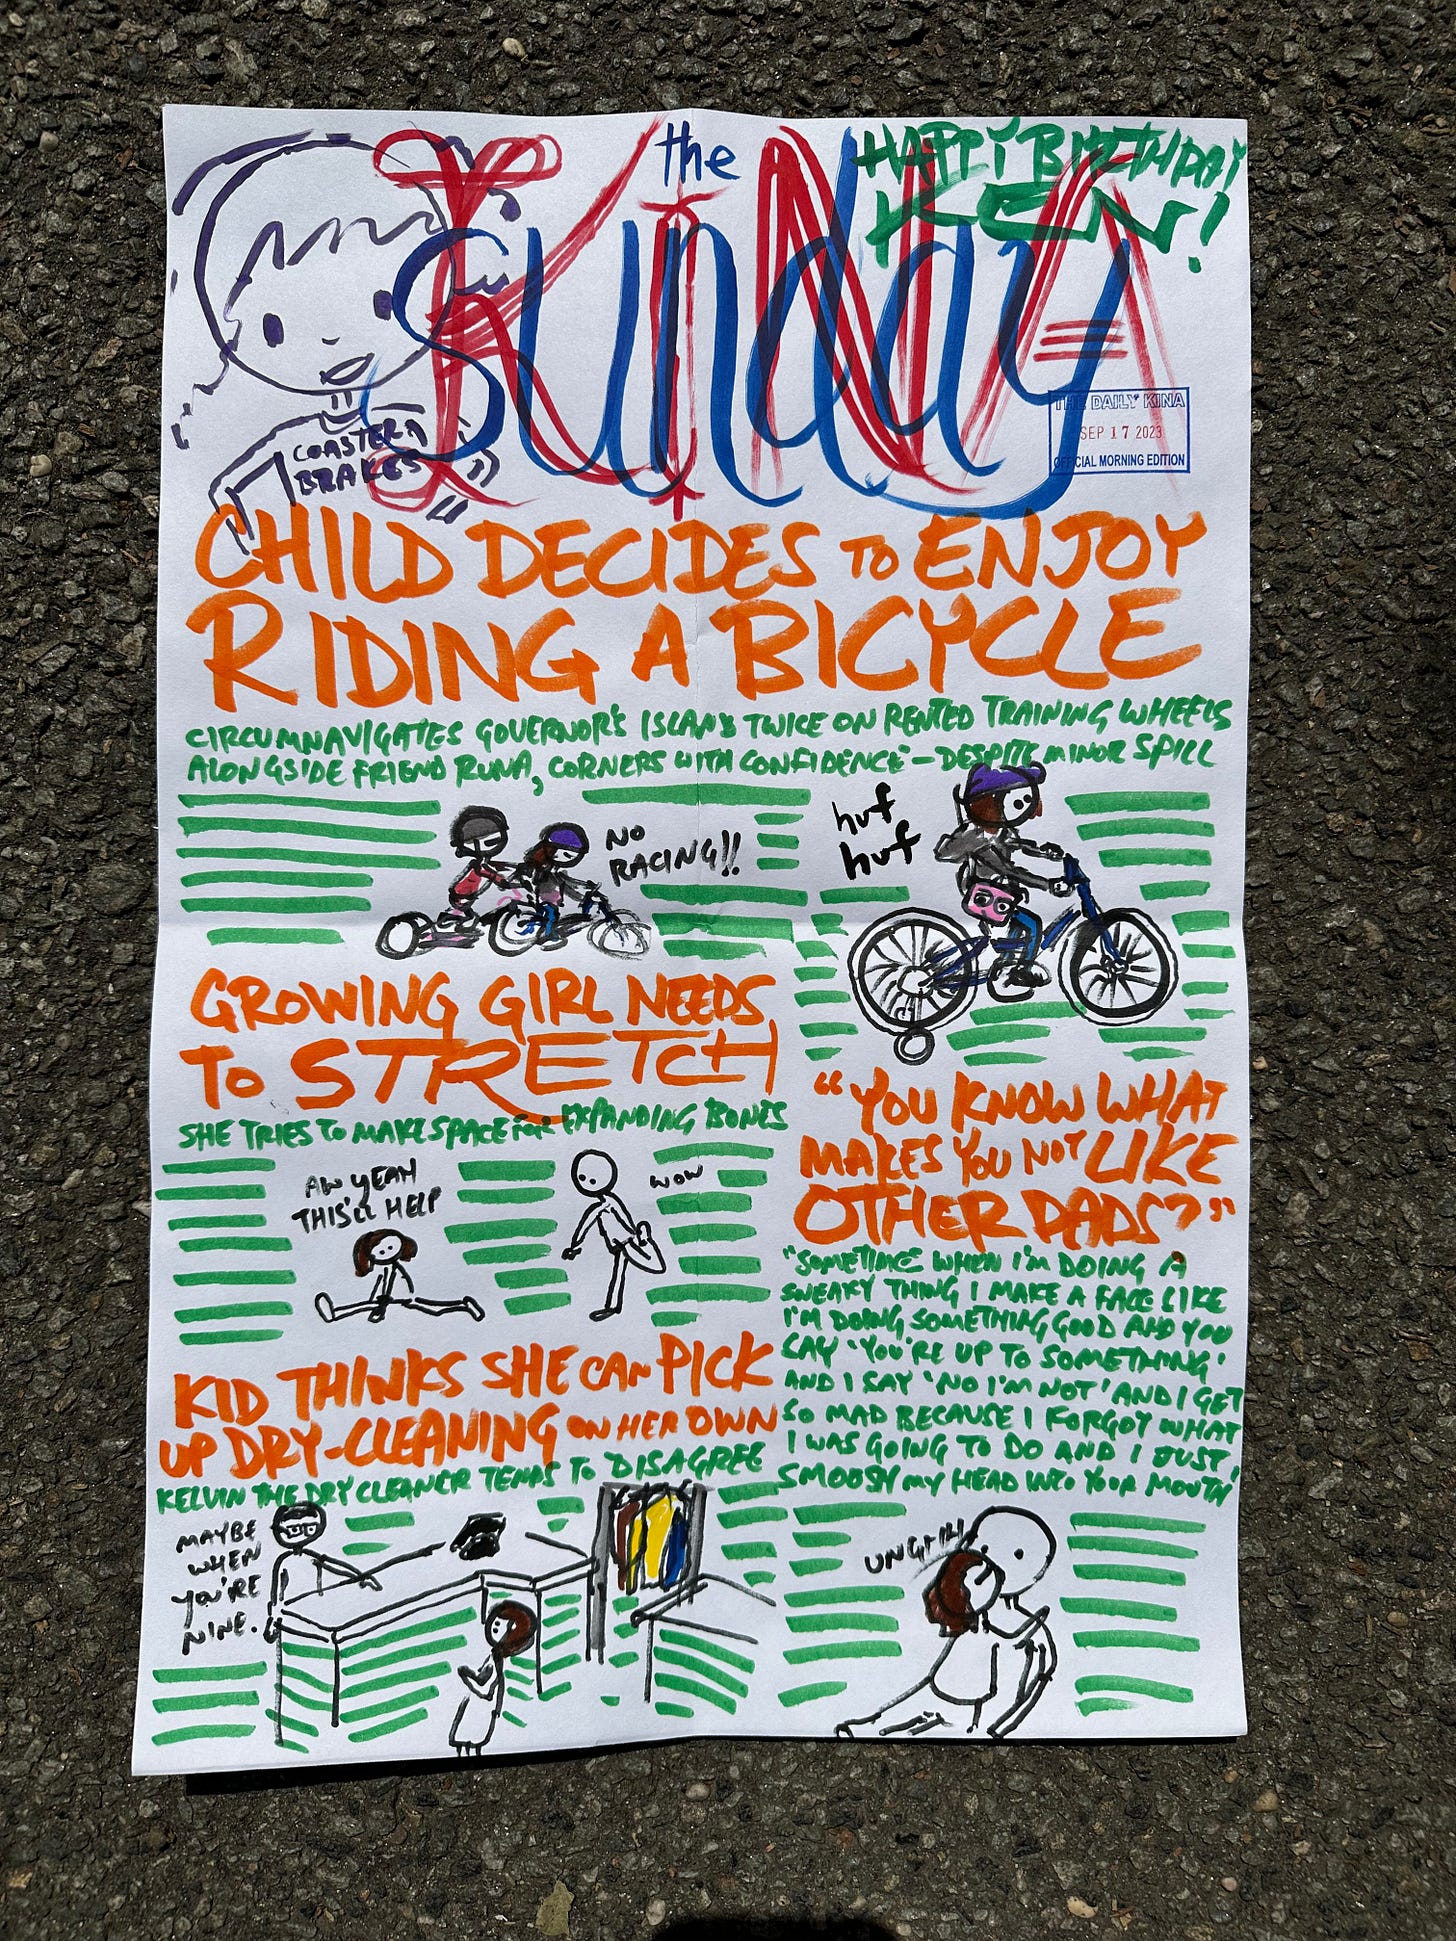 the
Sunday
KiNA
HAPPY BIRTHDAY
KEN!
COASTER
BRAKES
THE DAILY KINA
SEP 17 2023
OFFICIAL MORNING EDITION
CHILD DECIDES TO ENJOY
RIDING A BICYCLE
CIRCUMNAVIGATES GOVERNOR'S ISLAND TWICE ON RENTED TRAINING WHEELS
ALONGSIDE FRIEND RUNA, CORNERS WITH CONFIDENCE – DESPITE MINOR SPILL
NO
RACING!!
huf
huf
GROWING GIRL NEEDS
TO STRETCH
SHE TRIES TO MAKE SPACE FOR EXPANDING BONES
AW YEAH
THIS'LL HELP
WOW
KID THINKS SHE CAN PICK
UP DRY-CLEANING ON HER OWN
KELVIN THE DRY CLEANER TENDS TO DISAGREE
MAYBE
WHEN
YOU'RE
NINE.
"YOU KNOW WHAT
MAKES YOU NOT LIKE
OTHER DADS?"
"SOMETIME WHEN I'M DOING A
SNEAKY THING I MAKE A FACE LIKE
I'M DOING SOMETHING GOOD AND YOU
SAY 'YOU'RE UP TO SOMETHING'
AND I SAY 'NO I'M NOT' AND I GET
SO MAD BECAUSE I FORGOT WHAT
I WAS GOING TO DO AND I JUST
SMOOSH MY HEAD INTO YOUR MOUTH